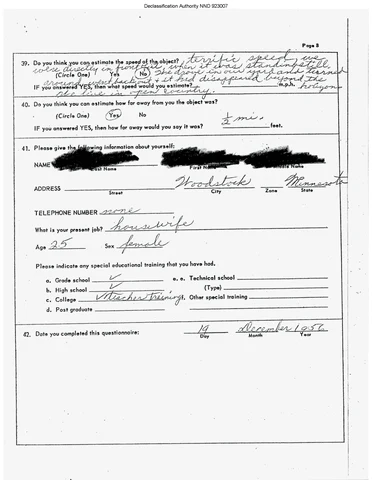 Declassification Authority NND 923007
Page 8
39. Do you think you can estimate the speed of the object? terrific speed, we
were directly in front of it, when it was standing still.
(Circle One) Yes No She drove in our yard and turned
around, went back out, & it had disappeared beyond the
IF you answered YES, then what speed would you estimate? m.p.h. horizon
in open country.
40. Do you think you can estimate how far away from you the object was?
(Circle One) Yes No
½ mi.
IF you answered YES, then how far away would you say it was? feet.
41. Please give the following information about yourself:
NAME
Last Name First Name Middle Name
ADDRESS Woodstock Minnesota
Street City Zone State
TELEPHONE NUMBER none
What is your present job? housewife
Age 25 Sex female
Please indicate any special educational training that you have had.
a. Grade school ✓ e. Technical school
b. High school ✓ (Type)
c. College ✓ teacher training f. Other special training
d. Post graduate
42. Date you completed this questionnaire: 19 December 1956
Day Month Year